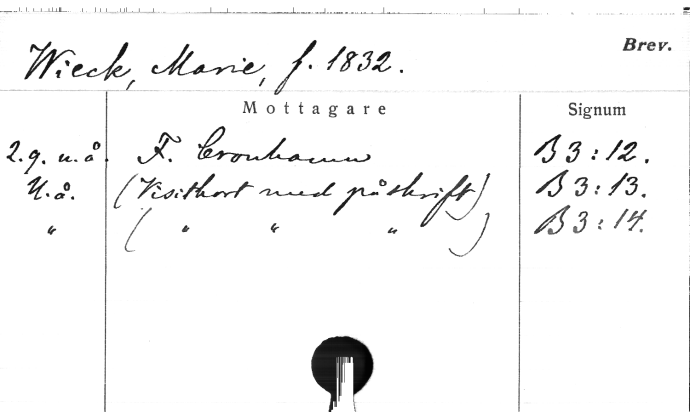 Wieck, Marie, f. 1832.
Brev.
Mottagare
Signum
2.9. u.å. F. Cronhamn B 3:12.
U.å. (Visitkort med påskrift) B 3:13.
" ( " " " ) B 3:14.